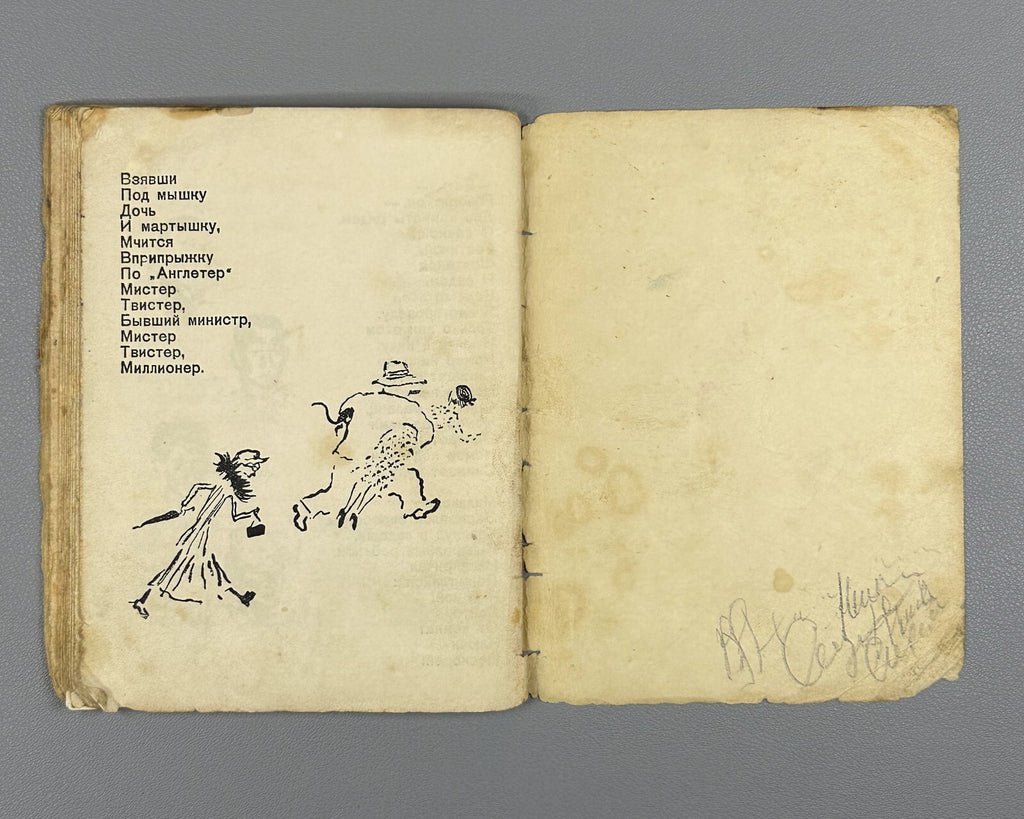 Взявши
Под мышку
Дочь
И мартышку,
Мчится
Вприпрыжку
По „Англетер“
Мистер
Твистер,
Бывший министр,
Мистер
Твистер,
Миллионер.